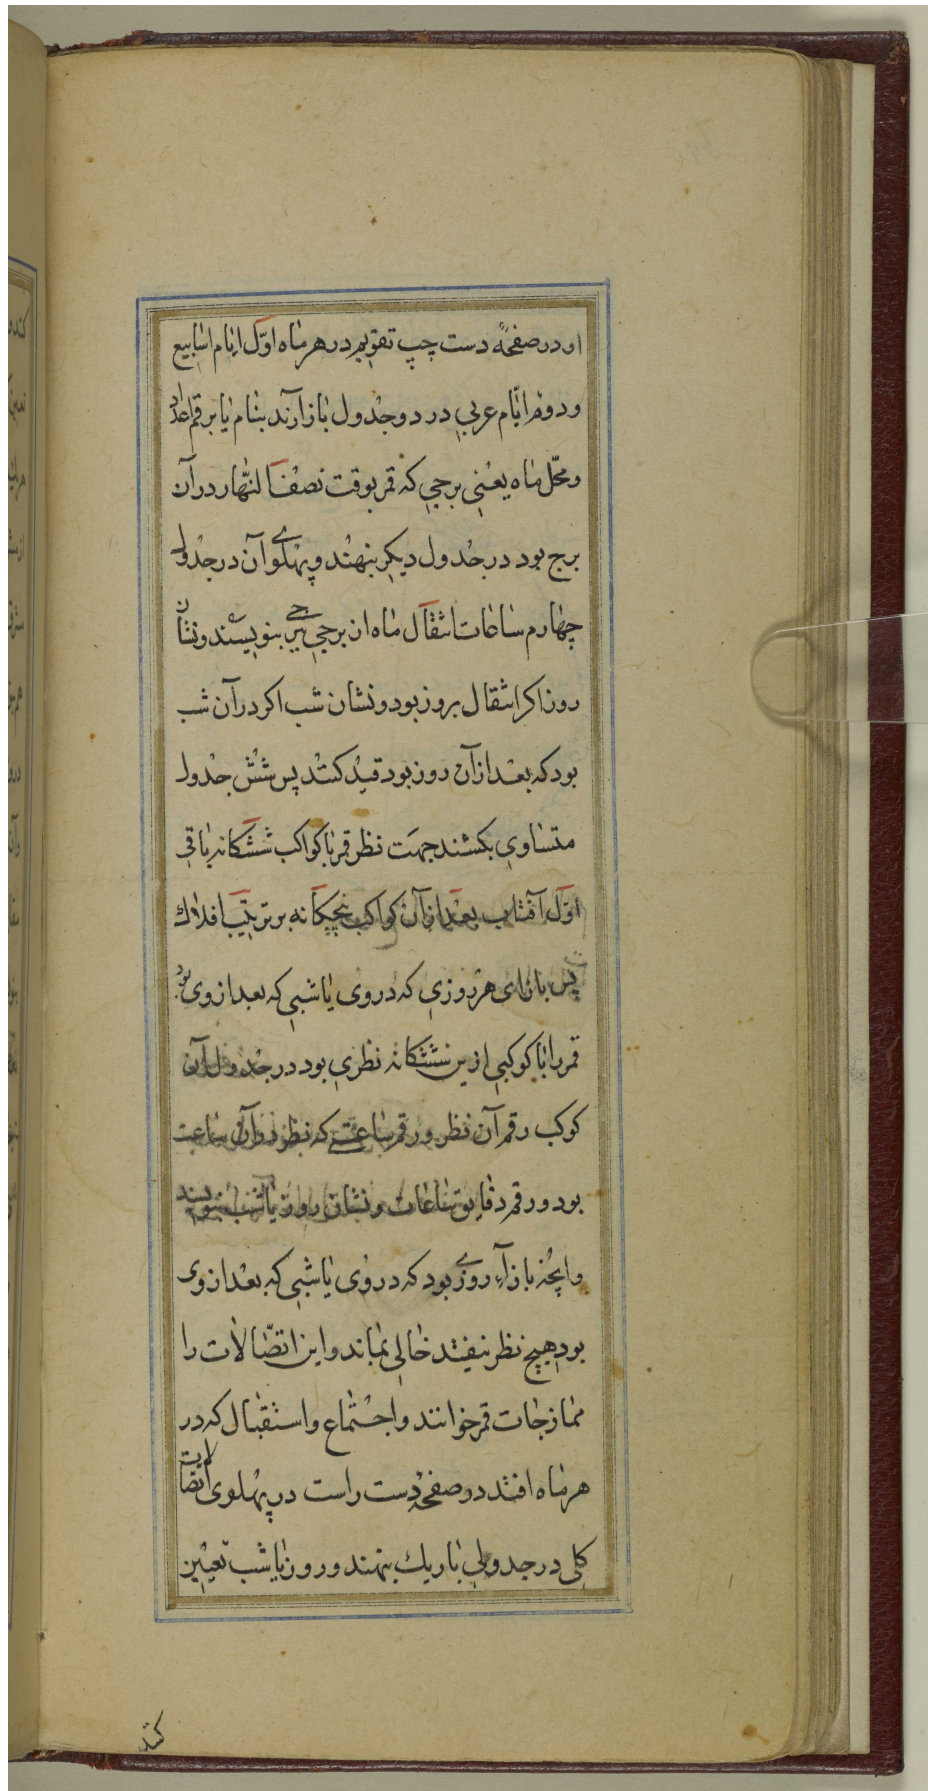 او در صفحهٔ دست چپ تقویم در هر ماه اوّل ایام اسابیع
و دوم ایّام عربی در دو جدول بازارند بنام یا برقم اعداد
و محّل ماه یعنی برجی که قمر بوقت نصف النّهار در آن
برج بود در جدول دیکر بنهند و پهلوی آن در جدول
چهارم ساعات انتقال ماه از برجی ببرجی بنویسند و نشان
روز اکر انتقال بروز بود و نشان شب اکر در آن شب
بود که بعد از آن روز بود قید کنند پس شش جدول
متساوی بکشند جهت نظر قمر با کواکب ششکانه باقی
اوّل آفتاب بعد از آن کواکب پنجکانه بر ترتیب افلاک
پس بازای هر روزی که در وی یا شبی که بعد از وی بود
قمر را با کوکبی ازین ششکانه نظری بود در جدول آن
کوکب رقم آن نظر و رقم ساعتی که نظر در آن ساعت
بود و رقم دقایق ساعات و نشان روز یا شب بنویسند
و آنچه بازاء روزی بود که در وی یا شبی که بعد از وی
بود هیچ نظر نیفتد خالی بماند و این اتّصالات را
ممازجات قمر خوانند و اجتماع و استقبال که در
هر ماه افتد در صفحهٔ دست راست در پهلوی اتصالات
کلی در جدولی باریک بنهند و روز یا شب تعیین
کنند